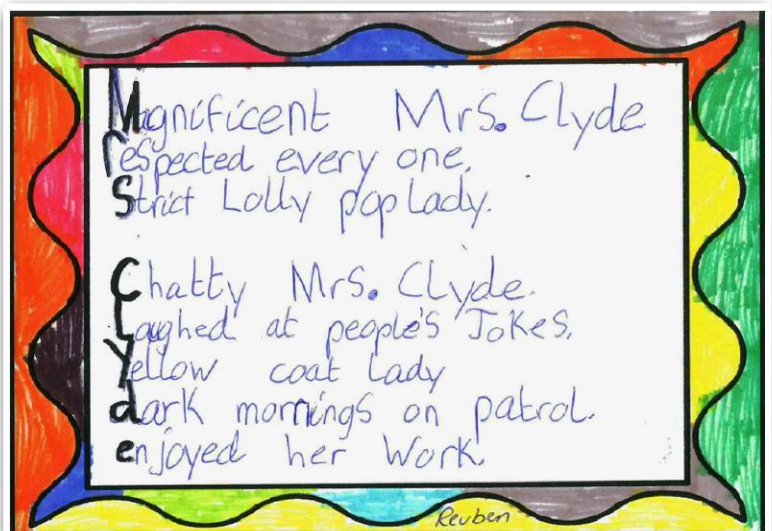 Magnificent Mrs. Clyde
respected every one.
Strict Lolly pop Lady.
Chatty Mrs. Clyde.
Laughed at people's Jokes.
Yellow coat Lady
dark mornings on patrol.
enjoyed her Work.
Reuben